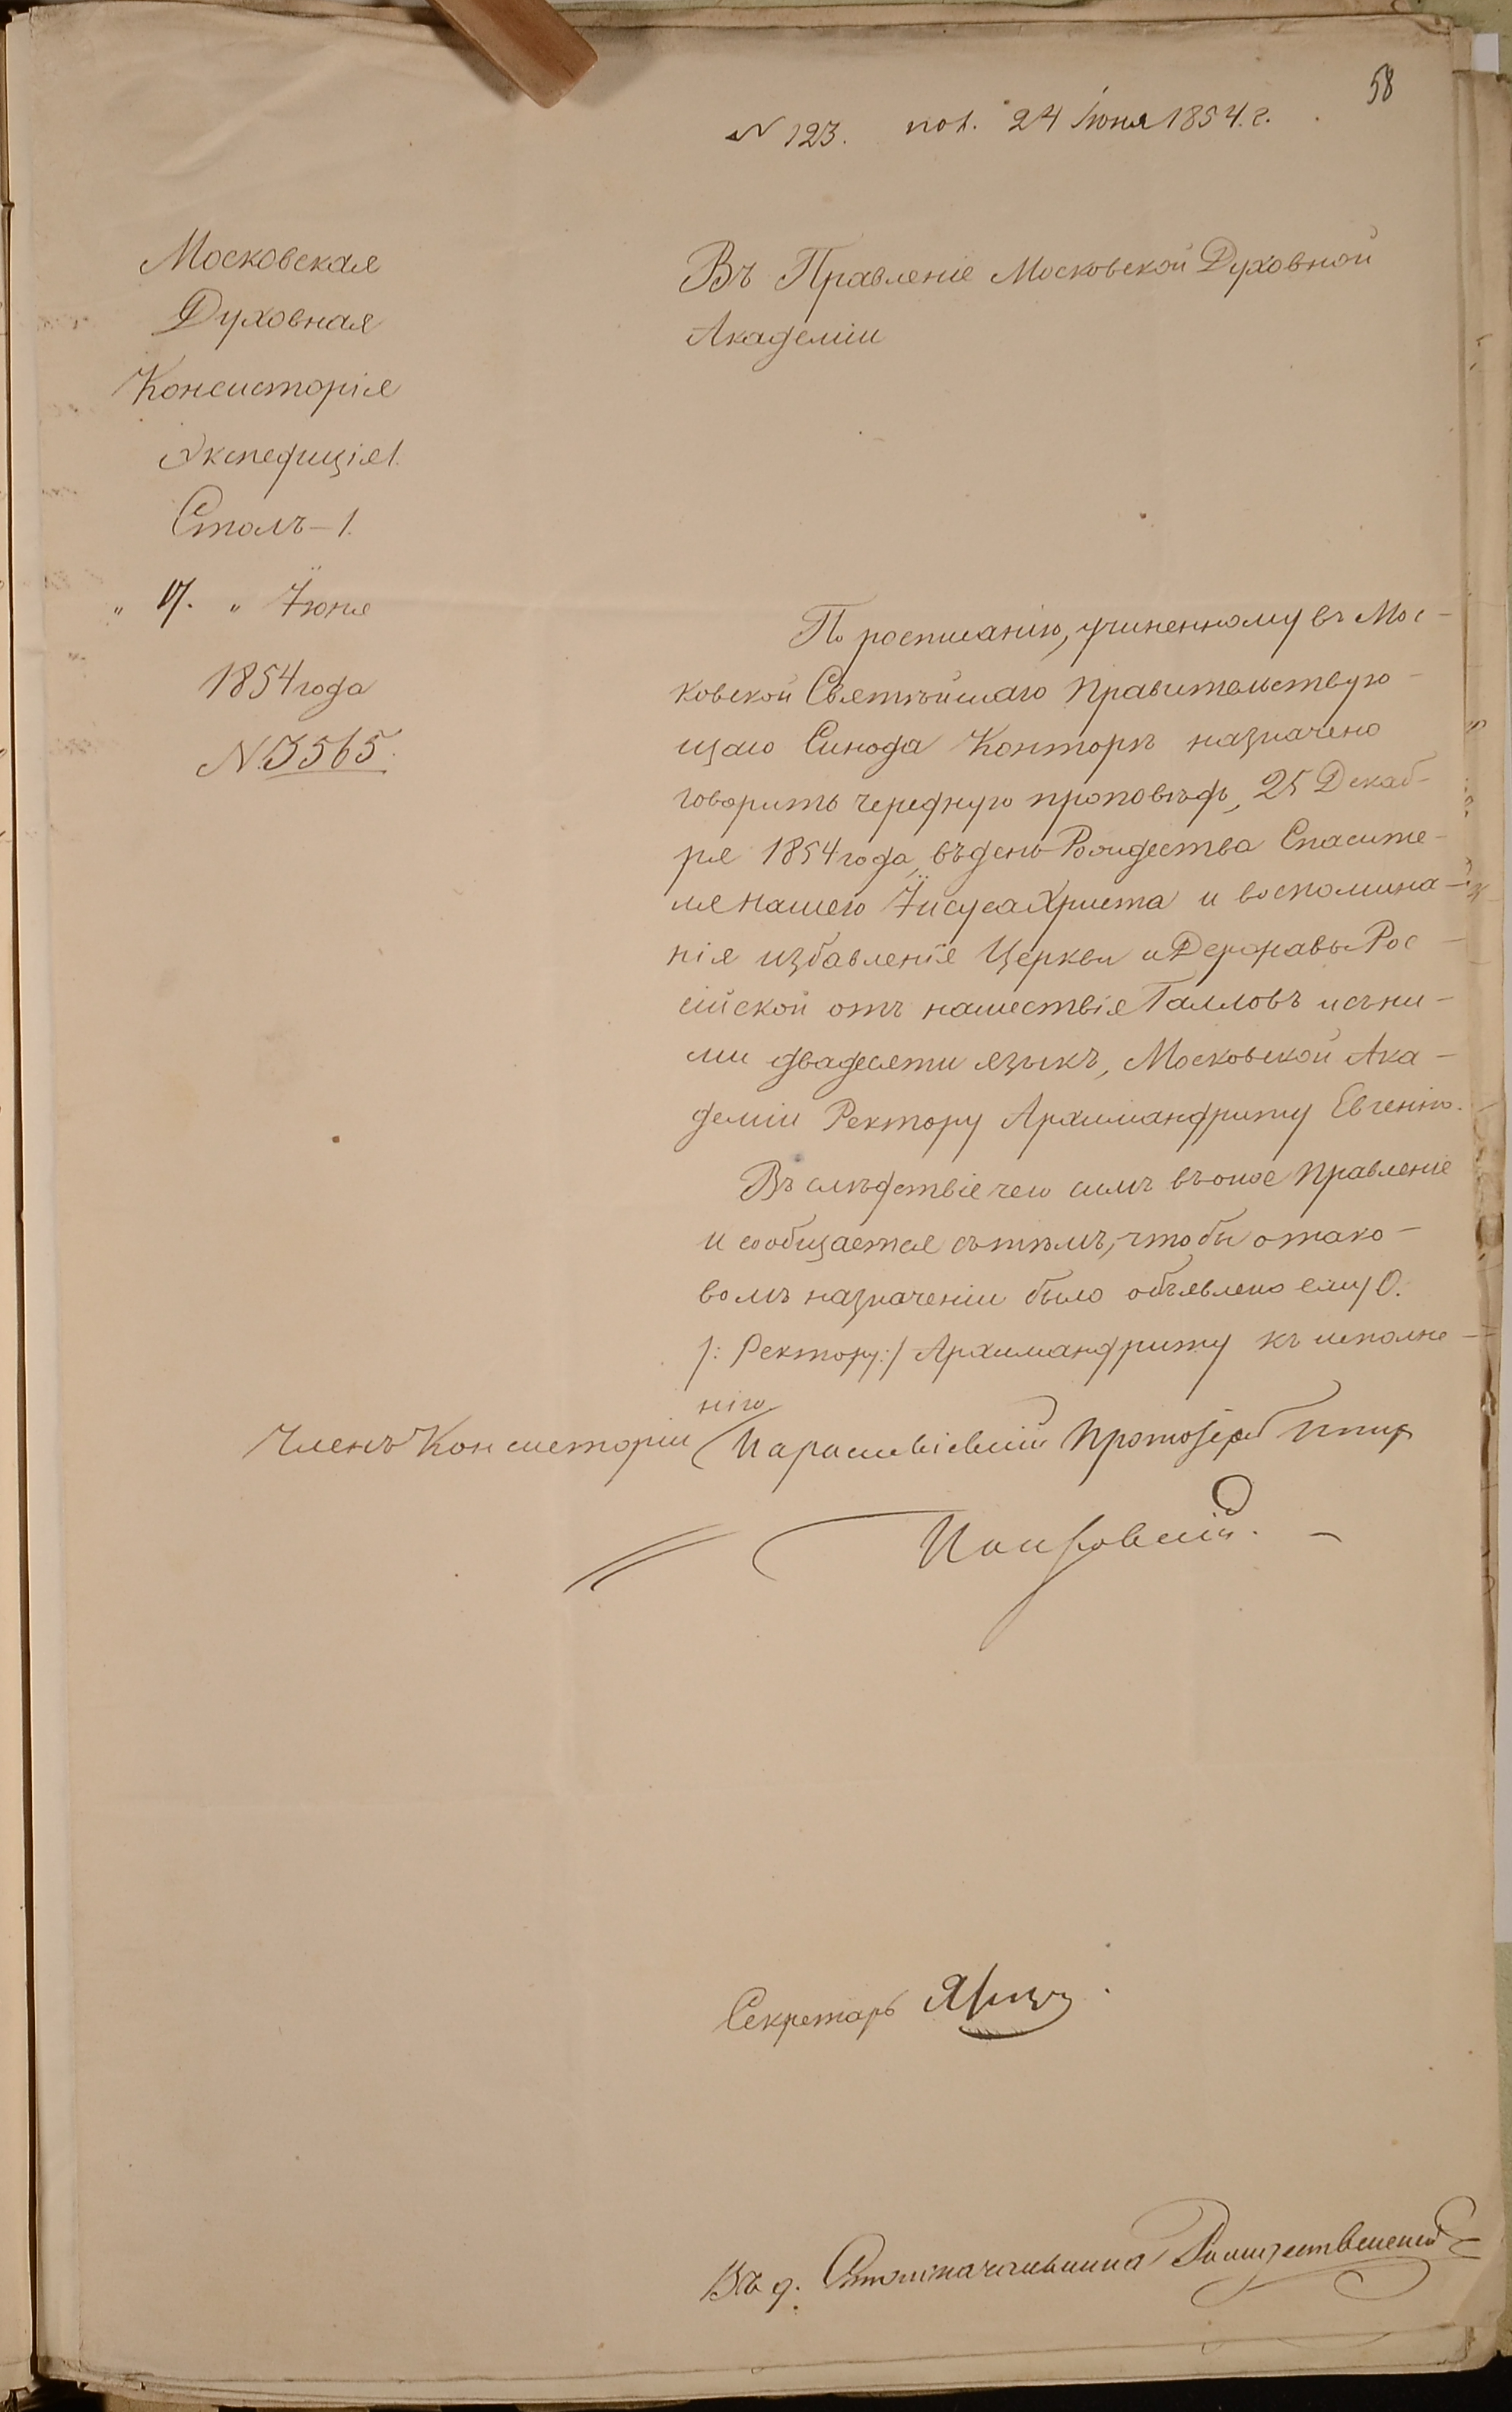 58
N 123. пол. 24 Іюня 1854. г.
Московская
Духовная
Консисторія
Экспедиція 1.
Столъ – 1.
" 17. " Іюня
1854 года
N. 3565.
Въ Правленіе Московской Духовной
Академіи
По росписанію, учиненному въ Мос-
ковской Святѣйшаго Правительствую-
щаго Синода Конторѣ назначено
говорить чередную проповѣдь, 25 Декаб-
ря 1854 года, въ день Рождества Спасите-
ля нашего Іисуса Христа и воспомина-
нія избавленія Церкви и Державы Рос-
сійской отъ нашествія Галловъ и съ ни-
ми двадесяти языкъ, Московской Ака-
деміи Ректору Архимандриту Евгенію.
Въ слѣдствіе чего симъ въ оное Правленіе
и сообщается съ тѣмъ, чтобы о тако-
вомъ назначеніи было объявлено ему О.
/: Ректору :/ Архимандриту къ исполне-
нію.
Членъ Консисторіи Параскевіевскій Протоіерей Петръ
Покровскій. –
Секретарь
Въ д. Столоначальника Рождественскій